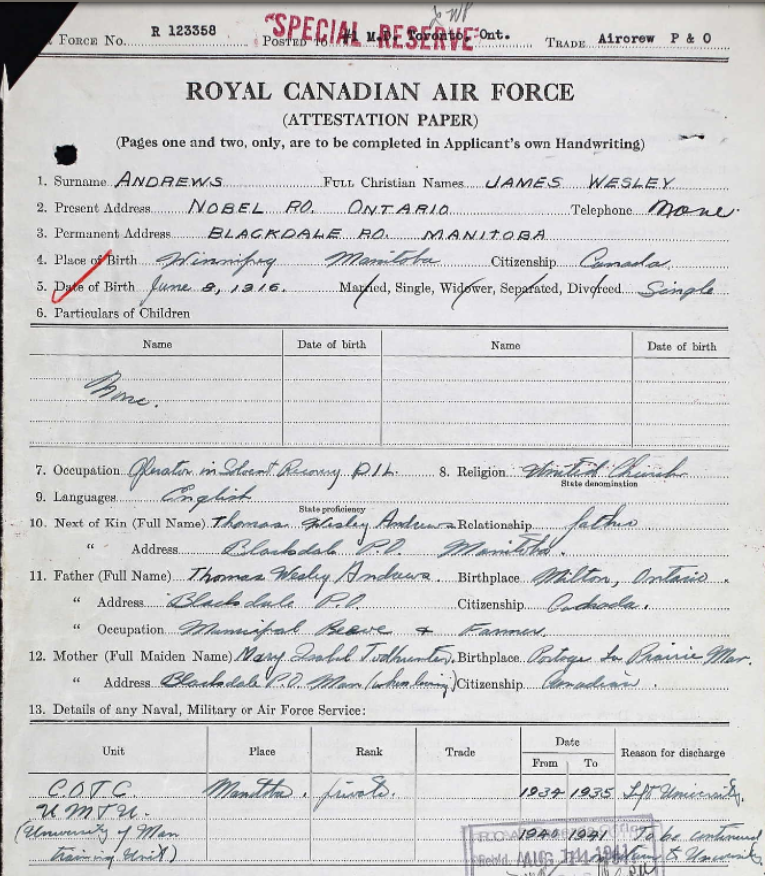 & WP
"SPECIAL RESERVE"
FORCE NO. R 123358 POSTED TO #1 M.D. Toronto, Ont. TRADE Aircrew P & O
ROYAL CANADIAN AIR FORCE
(ATTESTATION PAPER)
(Pages one and two, only, are to be completed in Applicant's own Handwriting)
1. Surname ANDREWS FULL Christian Names JAMES WESLEY
2. Present Address NOBEL PO. ONTARIO Telephone None.
3. Permanent Address BLACKDALE PO. MANITOBA
4. Place of Birth Winnipeg Manitoba Citizenship Canada.
5. Date of Birth June 8, 1916. Married, Single, Widower, Separated, Divorced Single
6. Particulars of Children
Name Date of birth Name Date of birth
None.
7. Occupation Operator in Solvent Recovery D.I.L. 8. Religion United Church
State denomination
9. Languages English
State proficiency
10. Next of Kin (Full Name) Thomas Wesley Andrews Relationship father
" Address Blacksdale P.O. Manitoba.
11. Father (Full Name) Thomas Wesley Andrews. Birthplace Milton, Ontario.
" Address Blacksdale P.O. Citizenship Canada.
" Occupation Municipal Reeve & Farmer.
12. Mother (Full Maiden Name) Mary Isabel Todhunter. Birthplace Portage La Prairie Man.
" Address Blacksdale P.O. Man (when living) Citizenship Canadian.
13. Details of any Naval, Military or Air Force Service:
Unit Place Rank Trade Date Reason for discharge
From To
C.O.T.C Manitoba. private. 1934 1935 Left University.
U.M.T.U. 1940 1941 To be continued
(University of Man
training Unit) return to University
AUG 14